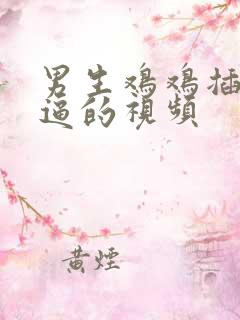 男生鸡鸡插
逼的视频
黄烟